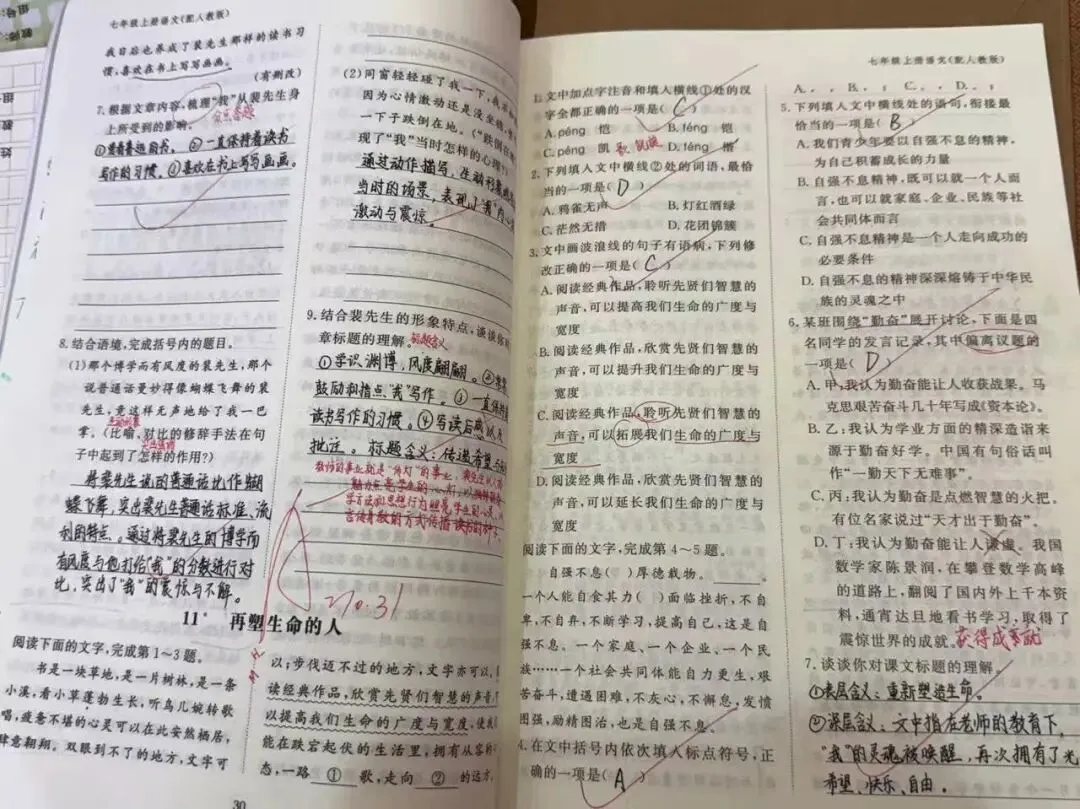 七年级上册语文(配人教版)
我日后也养成了裴先生那样的读书习
惯,喜欢在书上写写画画。
(有删改)
7.根据文章内容,梳理“我”从裴先生身
上所受到的影响。
分点答题
①爱看鲁迅的书。②一直保持着读书
写作的习惯。③喜欢在书上写写画画。
8.结合语境,完成括号内的题目。
(1)那个博学而有风度的裴先生,那个
说普通话曼妙得像蝴蝶飞舞的裴
先生,竟这样无声地给了我一巴
掌。(比喻、对比的修辞手法在句
子中起到了怎样的作用?)
将裴先生说的普通话比作蝴
蝶飞舞,突出裴先生普通话标准、流
利的特点。通过将裴先生的博学而
有风度与他打给“我”的分数进行对
比,突出了“我”的震惊与不解。
(2)同窗轻轻碰了我一下,我
因为心情激动还是没坐稳,
一下子跌倒在地。(“跌倒在
现了“我”当时怎样的心理
通过动作描写,生动形象
当时的场景,表现了“我”内心
激动与震惊。
9.结合裴先生的形象特点,谈谈你
章标题的理解。
标题含义
①学识渊博,风度翩翩。②
鼓励和指点“我”写作。③一直保持
读书写作的习惯。④写读后感以及
批注。标题含义:传递希望
教师的事业就是“传灯”的事业,
10.31
11* 再塑生命的人
阅读下面的文字,完成第1~3题。
书是一块草地,是一片树林,是一条
小溪,看小草蓬勃生长,听鸟儿婉转歌
唱,疲惫不堪的心灵可以在此安然栖居,
肆意翱翔。双眼到不了的地方,文字可
以;步伐迈不过的地方,文字亦可以。
读经典作品,欣赏先贤们智慧的声音,
以提高我们生命的广度与宽度,使我
能在跌宕起伏的生活里,拥有从容的
态,一路 ① 歌,走向 ② 的远方。
30
七年级上册语文(配人教版)
1.文中加点字注音和填入横线①处的汉
字全都正确的一项是( C )
A.péng 恺 B.féng 铠
C.péng 凯 D.féng 楷
2.下列填入文中横线②处的词语,最恰
当的一项是( D )
A.鸦雀无声 B.灯红酒绿
C.茫然无措 D.花团锦簇
3.文中画波浪线的句子有语病,下列修
改正确的一项是( C )
A.阅读经典作品,聆听先贤们智慧的
声音,可以提高我们生命的广度与
宽度
B.阅读经典作品,欣赏先贤们智慧的
声音,可以提升我们生命的广度与
宽度
C.阅读经典作品,聆听先贤们智慧的
声音,可以拓展我们生命的广度与
宽度
D.阅读经典作品,欣赏先贤们智慧的
声音,可以延长我们生命的广度与
宽度
阅读下面的文字,完成第4~5题。
自强不息( )厚德载物。
一个人能自食其力( )面临挫折,不自
卑,不自弃,不断学习,提高自己,这是自
强不息。一个家庭、一个企业、一个民
族……一个社会共同体能自力更生,艰
苦奋斗,遭遇困难,不灰心,不懈怠,发愤
图强,励精图治,也是自强不息。
4.在文中括号内依次填入标点符号,正
确的一项是( A )
5.下列填入文中横线处的语句,衔接最
恰当的一项是( B )
A.我们青少年要以自强不息的精神,
为自己积蓄成长的力量
B.自强不息精神,既可以就一个人而
言,也可以就家庭、企业、民族等社
会共同体而言
C.自强不息精神是一个人走向成功的
必要条件
D.自强不息的精神深深熔铸于中华民
族的灵魂之中
6.某班围绕“勤奋”展开讨论,下面是四
名同学的发言记录,其中偏离议题的
一项是( D )
A.甲:我认为勤奋能让人收获战果。马
克思艰苦奋斗几十年写成《资本论》。
B.乙:我认为学业方面的精深造诣来
源于勤奋好学。中国有句俗话叫
作“一勤天下无难事”。
C.丙:我认为勤奋是点燃智慧的火把。
有位名家说过“天才出于勤奋”。
D.丁:我认为勤奋能让人谦虚。我国
数学家陈景润,在攀登数学高峰
的道路上,翻阅了国内外上千本资
料,通宵达旦地看书学习,取得了
震惊世界的成就。获得成就
7.谈谈你对课文标题的理解。
①表层含义:重新塑造生命。
②深层含义:文中指在老师的教育下,
“我”的灵魂被唤醒,再次拥有了光明、
希望、快乐、自由。